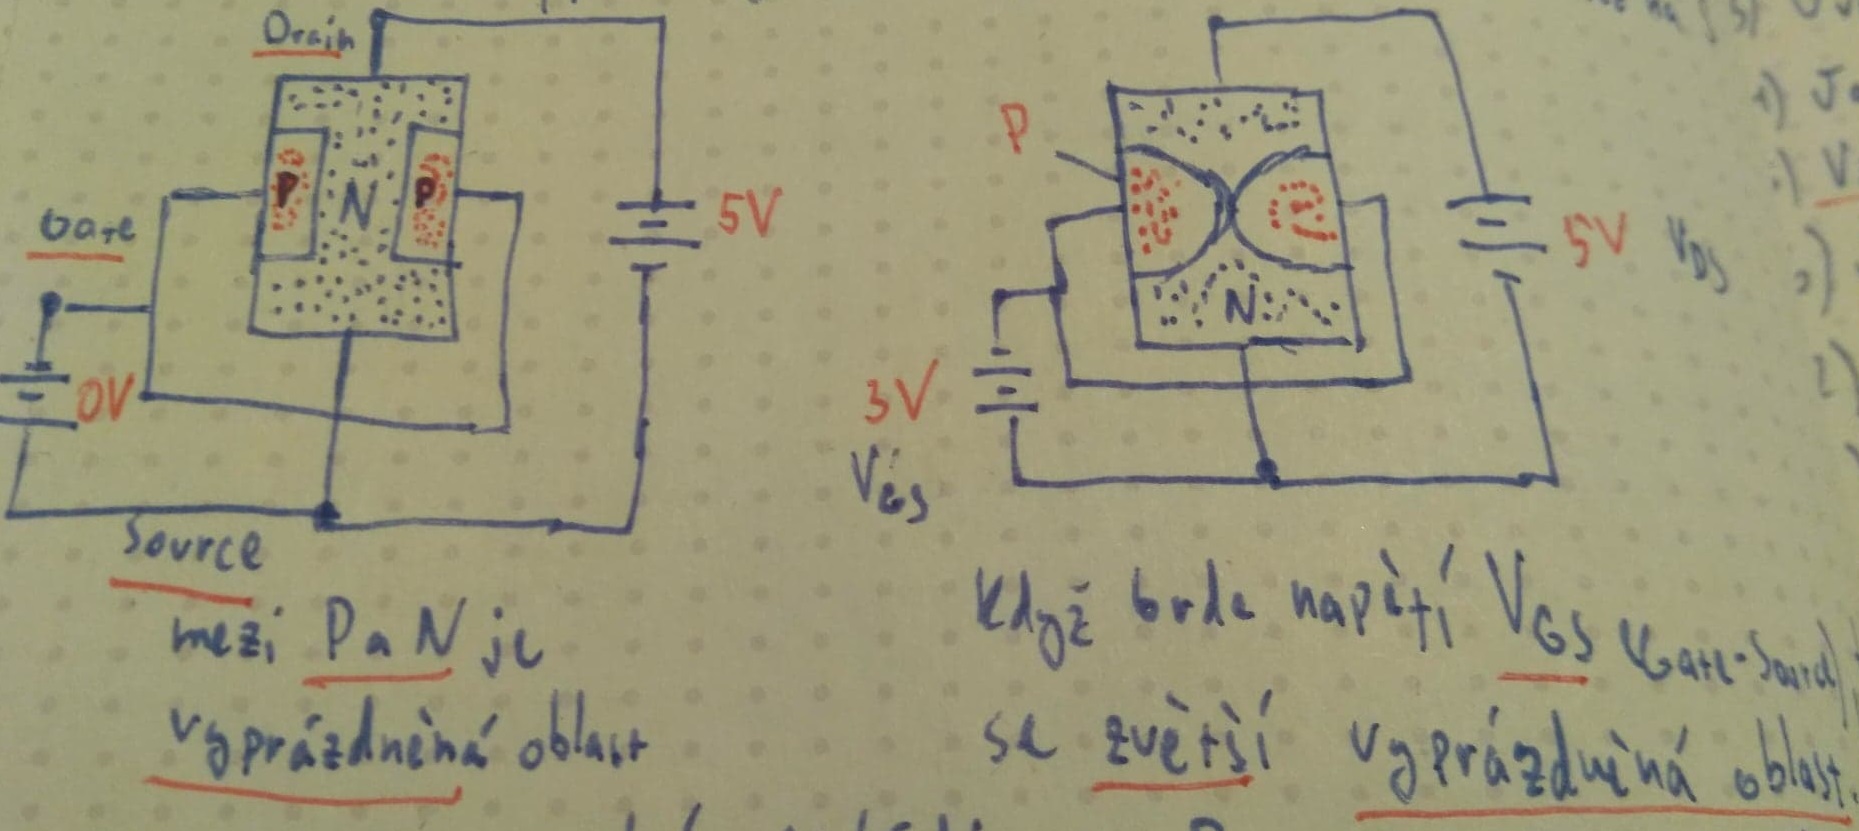 Drain
P
N
P
5V
Gate
0V
Source
mezi P a N je
vyprázdněná oblast
P
N
5V
VDS
3V
VGS
Když bude napětí VGS (Gate-Source)
se zvětší vyprázdněná oblast.
1) J
V
2)